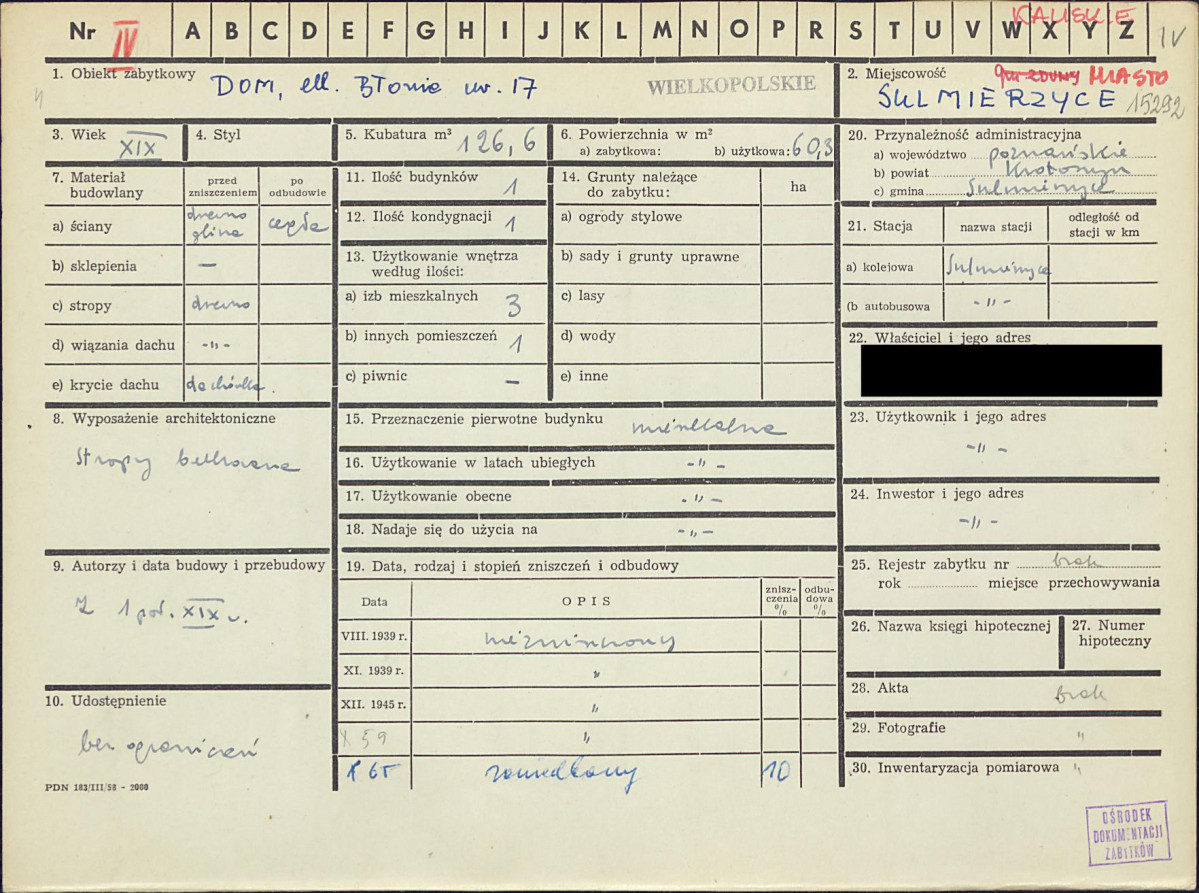 Nr IV A B C D E F G H I J K L M N O P R S T U V W X Y Z IV
KALISKIE
1. Obiekt zabytkowy DOM, ul. Błonie nr. 17
WIELKOPOLSKIE
2. Miejscowość MIASTO
SULMIERZYCE 15292
3. Wiek XIX
4. Styl
5. Kubatura m³ 126,6
6. Powierzchnia w m²
a) zabytkowa: b) użytkowa: 60,3
20. Przynależność administracyjna
a) województwo poznańskie
b) powiat Krotoszyn
c) gmina Sulmierzyce
7. Materiał budowlany
przed zniszczeniem
po odbudowie
a) ściany drewno glina cegła
b) sklepienia —
c) stropy drewno
d) wiązania dachu -„-
e) krycie dachu dachówka
11. Ilość budynków 1
12. Ilość kondygnacji 1
13. Użytkowanie wnętrza
według ilości:
a) izb mieszkalnych 3
b) innych pomieszczeń 1
c) piwnic —
14. Grunty należące
do zabytku: ha
a) ogrody stylowe
b) sady i grunty uprawne
c) lasy
d) wody
e) inne
21. Stacja
nazwa stacji
odległość od
stacji w km
a) kolejowa Sulmierzyce
(b autobusowa -„-
22. Właściciel i jego adres
8. Wyposażenie architektoniczne
Stropy belkowane
15. Przeznaczenie pierwotne budynku mieszkalne
16. Użytkowanie w latach ubiegłych -„-
17. Użytkowanie obecne -„-
18. Nadaje się do użycia na -„-
23. Użytkownik i jego adres
-„-
24. Inwestor i jego adres
-„-
9. Autorzy i data budowy i przebudowy
Z 1 poł. XIX w.
19. Data, rodzaj i stopień zniszczeń i odbudowy
Data
OPIS
znisz-
czenia
%
odbu-
dowa
%
VIII. 1939 r. niezniszczony
XI. 1939 r. „
XII. 1945 r. „
X 59 „
X 65 zaniedbany 10
25. Rejestr zabytku nr brak
rok miejsce przechowywania
26. Nazwa księgi hipotecznej
27. Numer
hipoteczny
28. Akta brak
29. Fotografie „
30. Inwentaryzacja pomiarowa „
10. Udostępnienie
bez ograniczeń
PDN 183/III/58 - 2000
OŚRODEK
DOKUMENTACJI
ZABYTKÓW